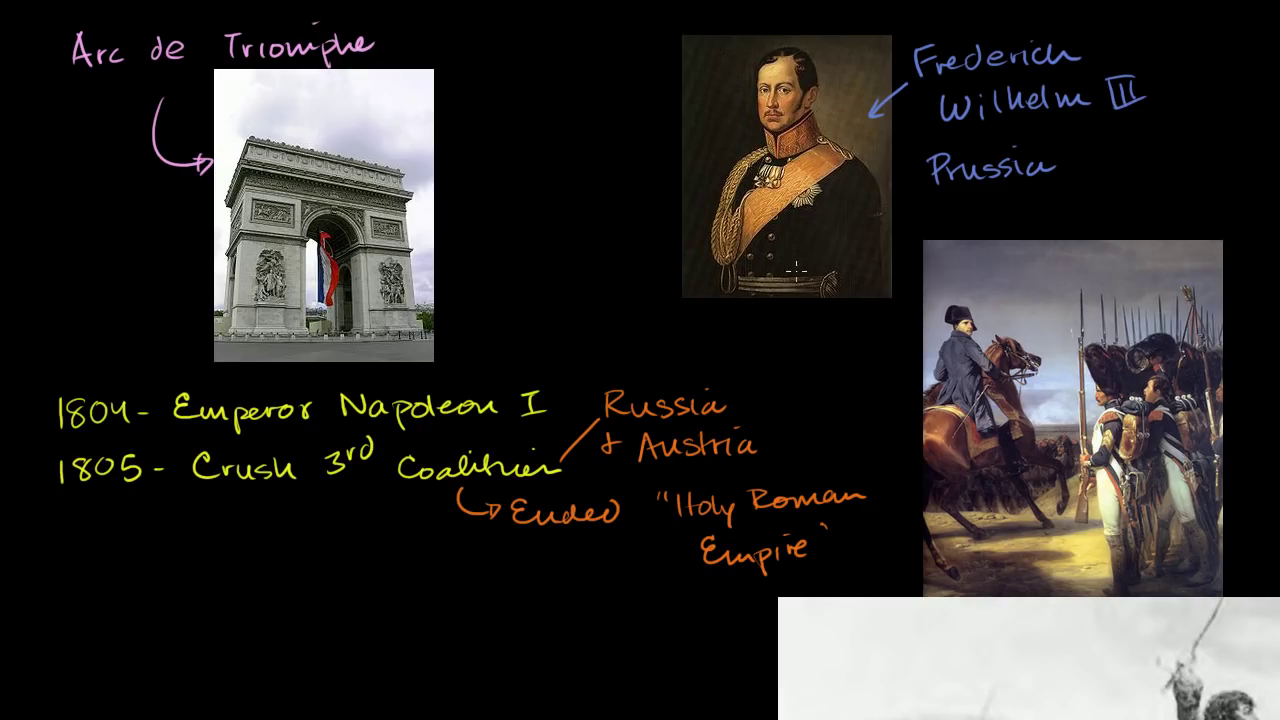 Arc de Triomphe
Frederich
Wilhelm III
Prussia
1804- Emperor Napoleon I
1805- Crush 3rd Coalition
Russia
& Austria
Ended "Holy Roman
Empire"